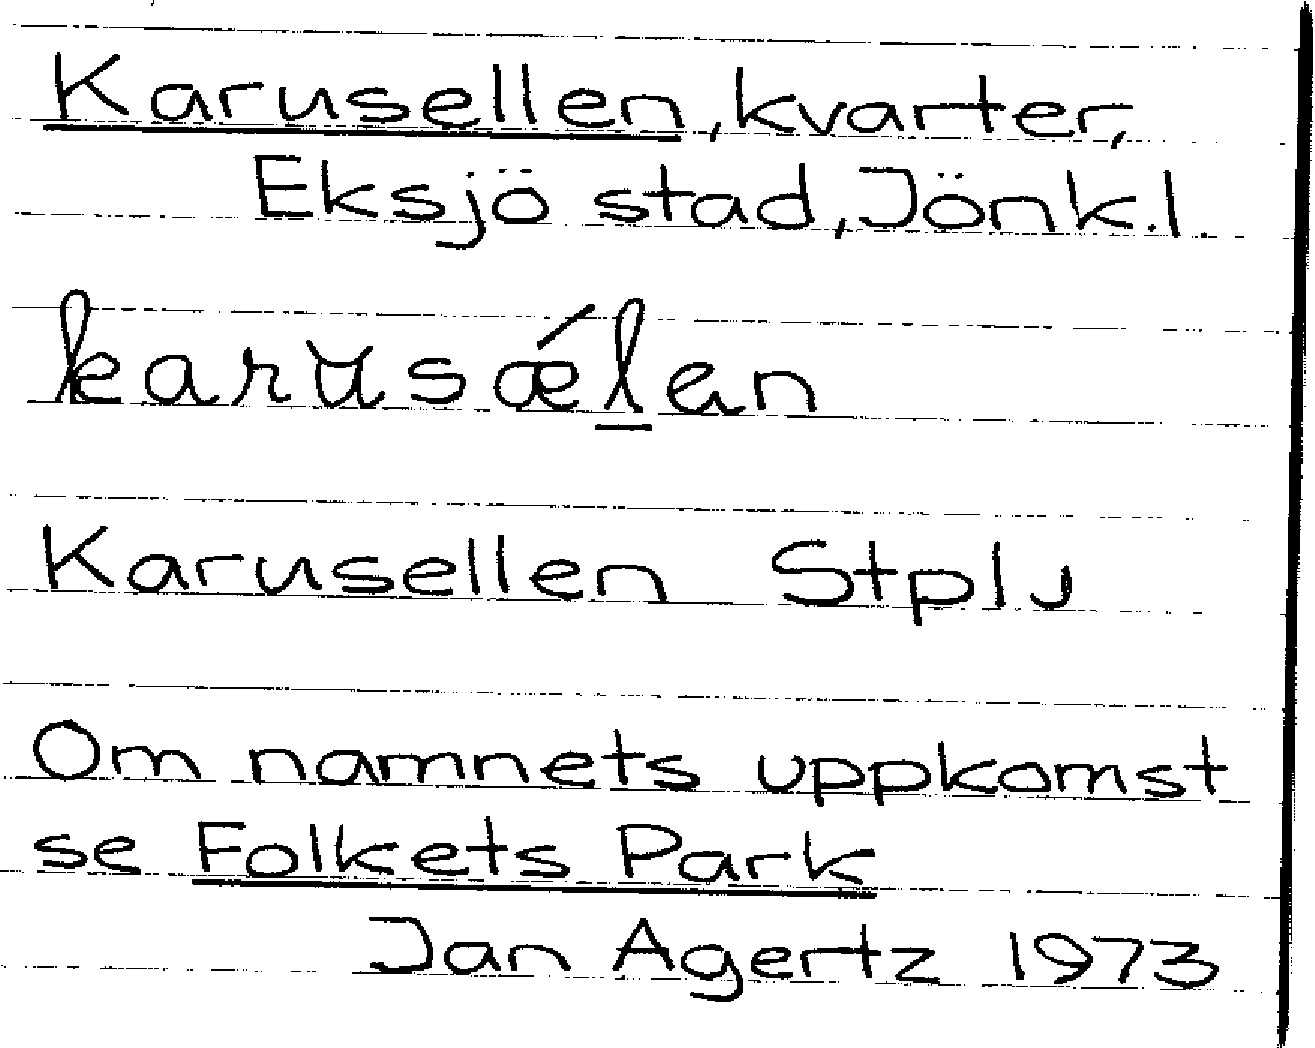 Karusellen, kvarter,
Eksjö stad, Jönk.l.
karusǽlen
Karusellen Stplu
Om namnets uppkomst
se Folkets Park
Jan Agertz 1973